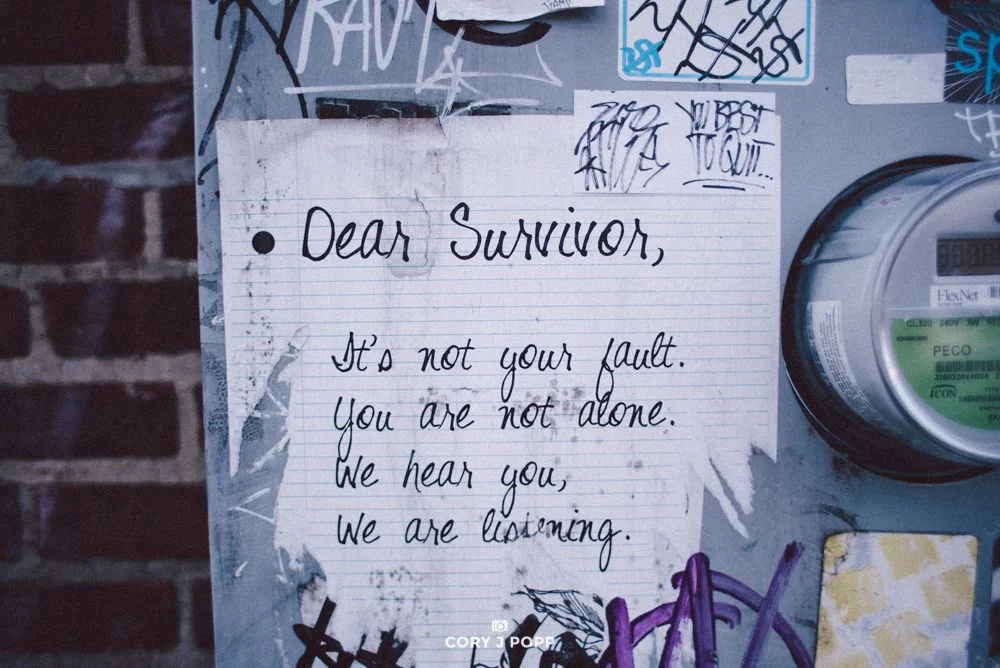 YOU BEST
TO QUIT...
Dear Survivor,
It's not your fault.
You are not alone.
We hear you,
We are listening.
FlexNet
CL320 240V 3W
PECO
ICON
CORY J POPP